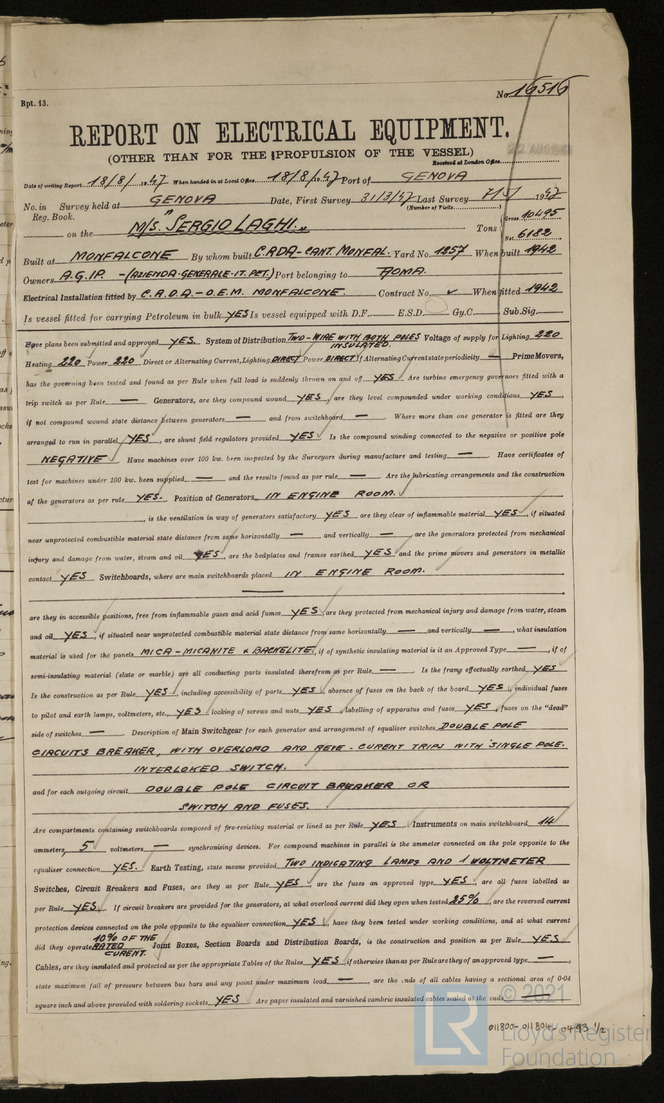 Rpt. 13.
No. 16516
REPORT ON ELECTRICAL EQUIPMENT.
(OTHER THAN FOR THE PROPULSION OF THE VESSEL)
22 AUG
Received at London Office
Date of writing Report 18/8/1947 When handed in at Local Office 18/8/1947 Port of GENOVA
No. in Survey held at GENOVA Date, First Survey 31/3/47 Last Survey 7/5/1947
Reg. Book. (Number of Visits)
on the M/S. "SERGIO LAGHI" Tons Gross 10495 Net 6182
Built at MONFALCONE By whom built C.R.D.A-CANT. MONFAL. Yard No. 1257 When built 1942
Owners A.G.I.P. - (AZIENDA-GENERALE-IT. PET.) Port belonging to ROMA.
Electrical Installation fitted by C.R.D.A. - O.E.M. MONFALCONE. Contract No. ✓ When fitted 1942
Is vessel fitted for carrying Petroleum in bulk YES Is vessel equipped with D.F. E.S.D. Gy.C. Sub.Sig.
Have plans been submitted and approved YES. System of Distribution TWO-WIRE WITH BOTH POLES INSULATED. Voltage of supply for Lighting 220
Heating 220 Power 220 Direct or Alternating Current, Lighting DIRECT Power DIRECT If Alternating Current state periodicity — Prime Movers,
has the governing been tested and found as per Rule when full load is suddenly thrown on and off YES Are turbine emergency governors fitted with a
trip switch as per Rule — Generators, are they compound wound YES, are they level compounded under working conditions YES,
if not compound wound state distance between generators — and from switchboard — Where more than one generator is fitted are they
arranged to run in parallel YES, are shunt field regulators provided YES Is the compound winding connected to the negative or positive pole
NEGATIVE Have machines over 100 kw. been inspected by the Surveyors during manufacture and testing — Have certificates of
test for machines under 100 kw. been supplied — and the results found as per rule — Are the lubricating arrangements and the construction
of the generators as per rule YES. Position of Generators IN ENGINE ROOM.
, is the ventilation in way of generators satisfactory YES are they clear of inflammable material YES, if situated
near unprotected combustible material state distance from same horizontally — and vertically —, are the generators protected from mechanical
injury and damage from water, steam and oil YES, are the bedplates and frames earthed YES and the prime movers and generators in metallic
contact YES Switchboards, where are main switchboards placed IN ENGINE ROOM.
—
are they in accessible positions, free from inflammable gases and acid fumes YES, are they protected from mechanical injury and damage from water, steam
and oil YES, if situated near unprotected combustible material state distance from same horizontally — and vertically —, what insulation
material is used for the panels MICA-MICANITE & BACKELITE, if of synthetic insulating material is it an Approved Type —, if of
semi-insulating material (slate or marble) are all conducting parts insulated therefrom as per Rule — Is the frame effectually earthed YES
Is the construction as per Rule YES, including accessibility of parts YES, absence of fuses on the back of the board YES, individual fuses
to pilot and earth lamps, voltmeters, etc., YES locking of screws and nuts YES, labelling of apparatus and fuses YES, fuses on the "dead"
side of switches — Description of Main Switchgear for each generator and arrangement of equaliser switches DOUBLE POLE
CIRCUITS BREAKER, WITH OVERLOAD AND REVE-CURENT TRIPS WITH SINGLE POLE.
INTERLOKED SWITCH.
and for each outgoing circuit DOUBLE POLE CIRCUIT BREAKER OR
SWITCH AND FUSES.
Are compartments containing switchboards composed of fire-resisting material or lined as per Rule YES Instruments on main switchboard 14
ammeters, 5 voltmeters — synchronising devices. For compound machines in parallel is the ammeter connected on the pole opposite to the
equaliser connection YES. Earth Testing, state means provided TWO INDICATING LAMPS AND 1 VOLTMETER
Switches, Circuit Breakers and Fuses, are they as per Rule YES, are the fuses an approved type YES, are all fuses labelled as
per Rule YES. If circuit breakers are provided for the generators, at what overload current did they open when tested 25%, are the reversed current
protection devices connected on the pole opposite to the equaliser connection YES, have they been tested under working conditions, and at what current
did they operate 10% OF THE RATED CURENT. Joint Boxes, Section Boards and Distribution Boards, is the construction and position as per Rule YES
Cables, are they insulated and protected as per the appropriate Tables of the Rules YES, if otherwise than as per Rule are they of an approved type —,
state maximum fall of pressure between bus bars and any point under maximum load —, are the ends of all cables having a sectional area of 0·04
square inch and above provided with soldering sockets YES Are paper insulated and varnished cambric insulated cables sealed at the ends —
© 2021
LR
Lloyd's Register
Foundation
011800-011804-0493 1/2